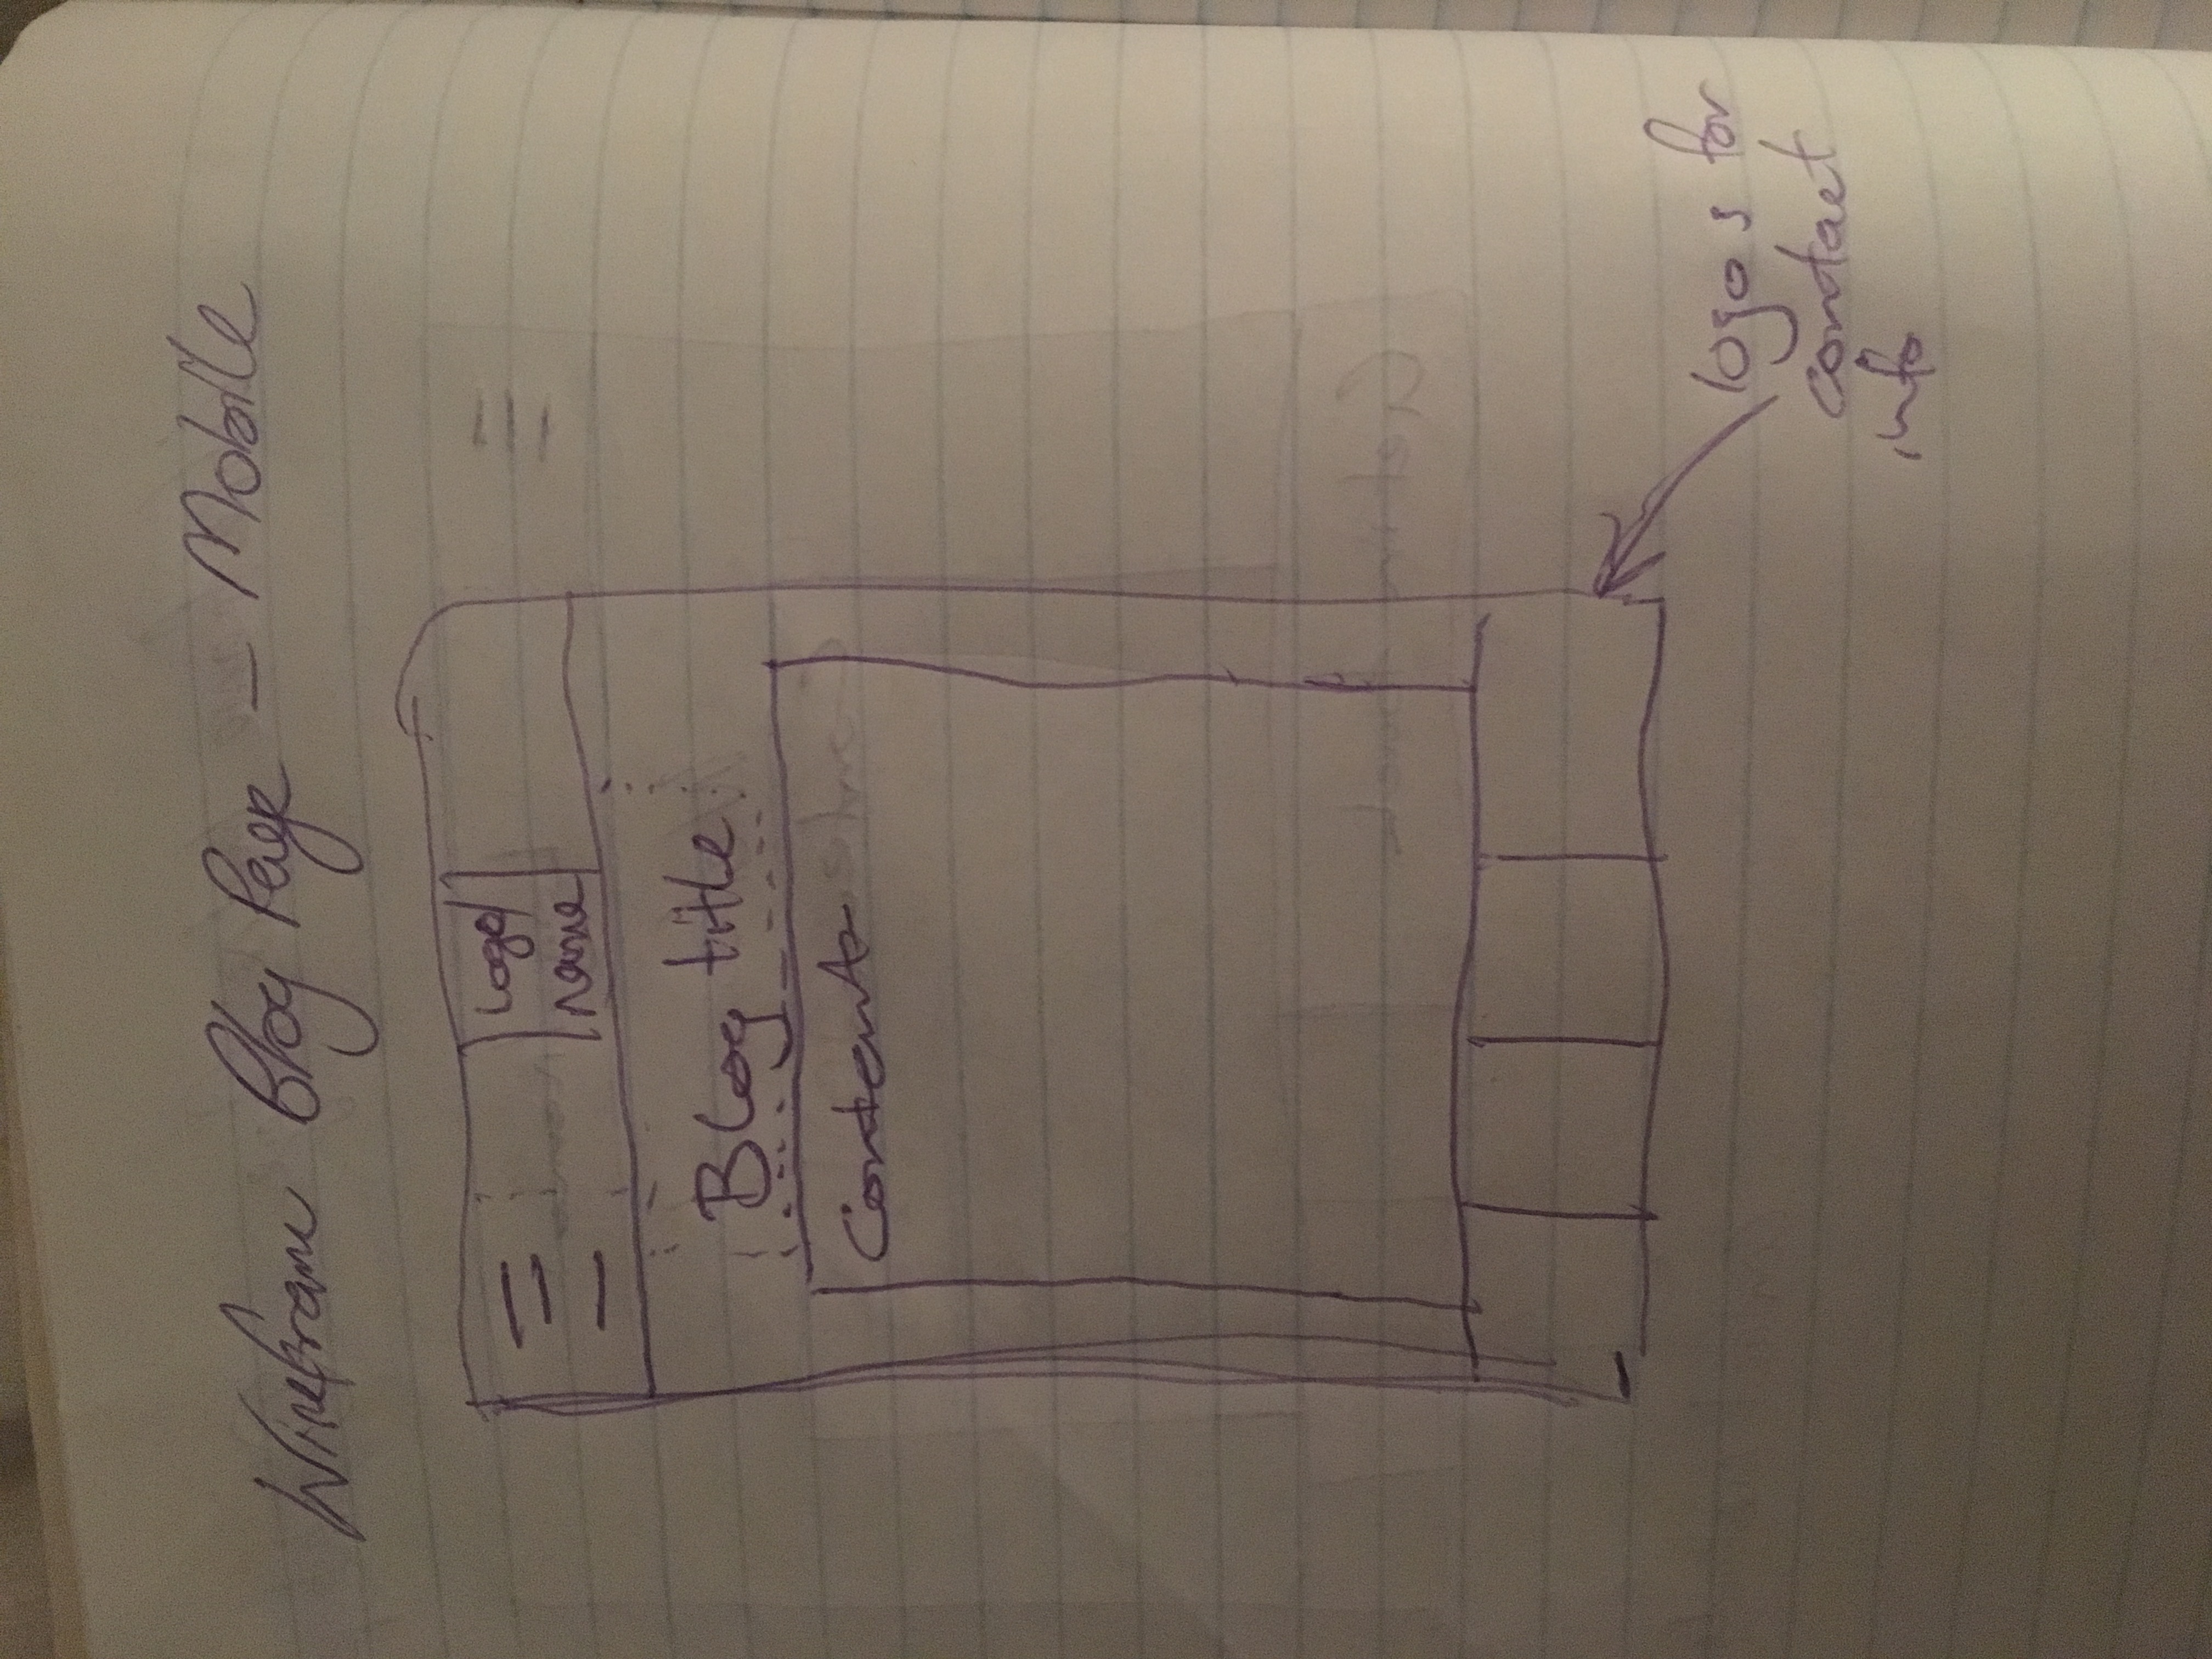 Wireframe Blog Page - Mobile
Logo/
name
Blog title
Content
logos for
contact
info